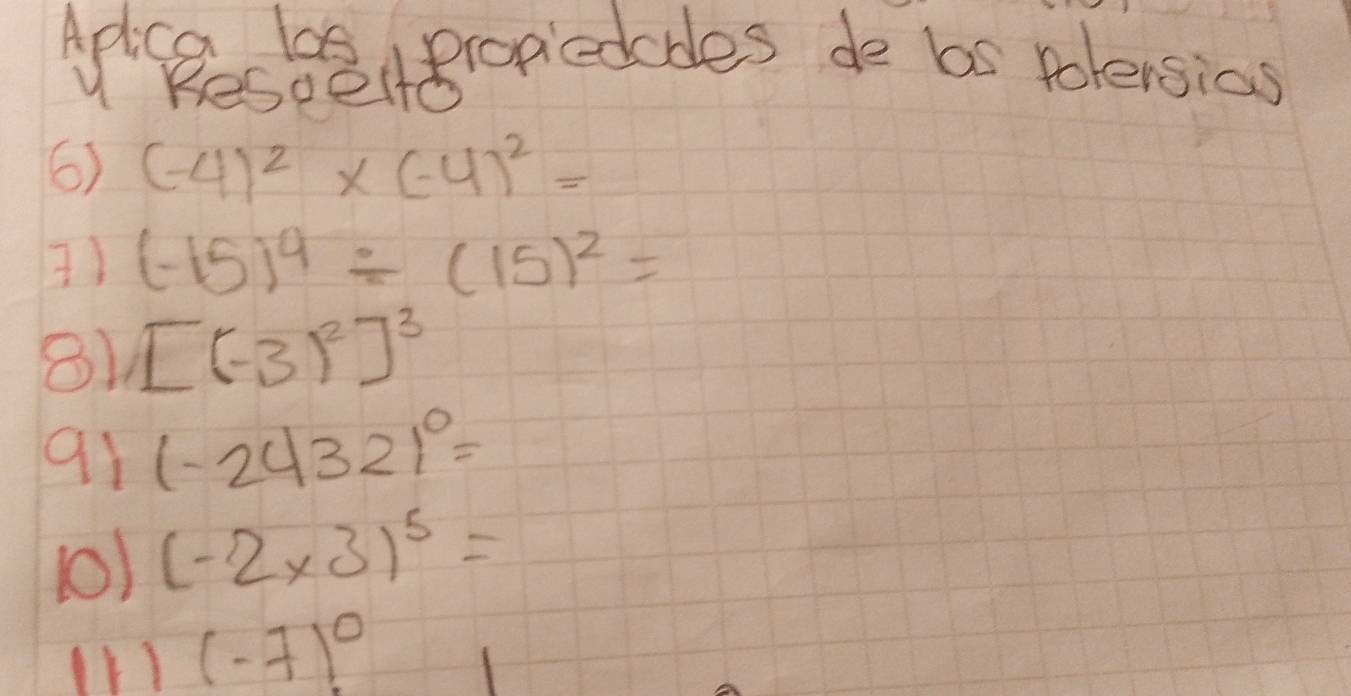 Aplica las propiedades de las Potensias
y Resuelto
6) (-4)² × (-4)² =
7) (-15)⁹ ÷ (15)² =
8) [(-3)²]³
9) (-2432)⁰ =
10) (-2×3)⁵ =
11) (-7)⁰